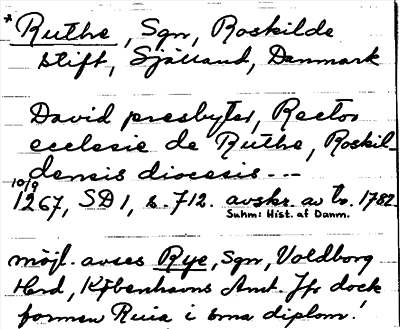 * Ruthe, Sgn, Roskilde
stift, Själland, Danmark
David presbyter, Rector
ecclesie de Ruthe, Roskil-
densis diocesis ---
10/9
1267, SD 1, s. 712. avskr. av tr. 1782
Suhm: Hist. af Danm.
möjl. avses Rye, Sgn, Voldborg
Hrd, Københavns Amt. Jfr dock
formen Ruia i sma diplom!